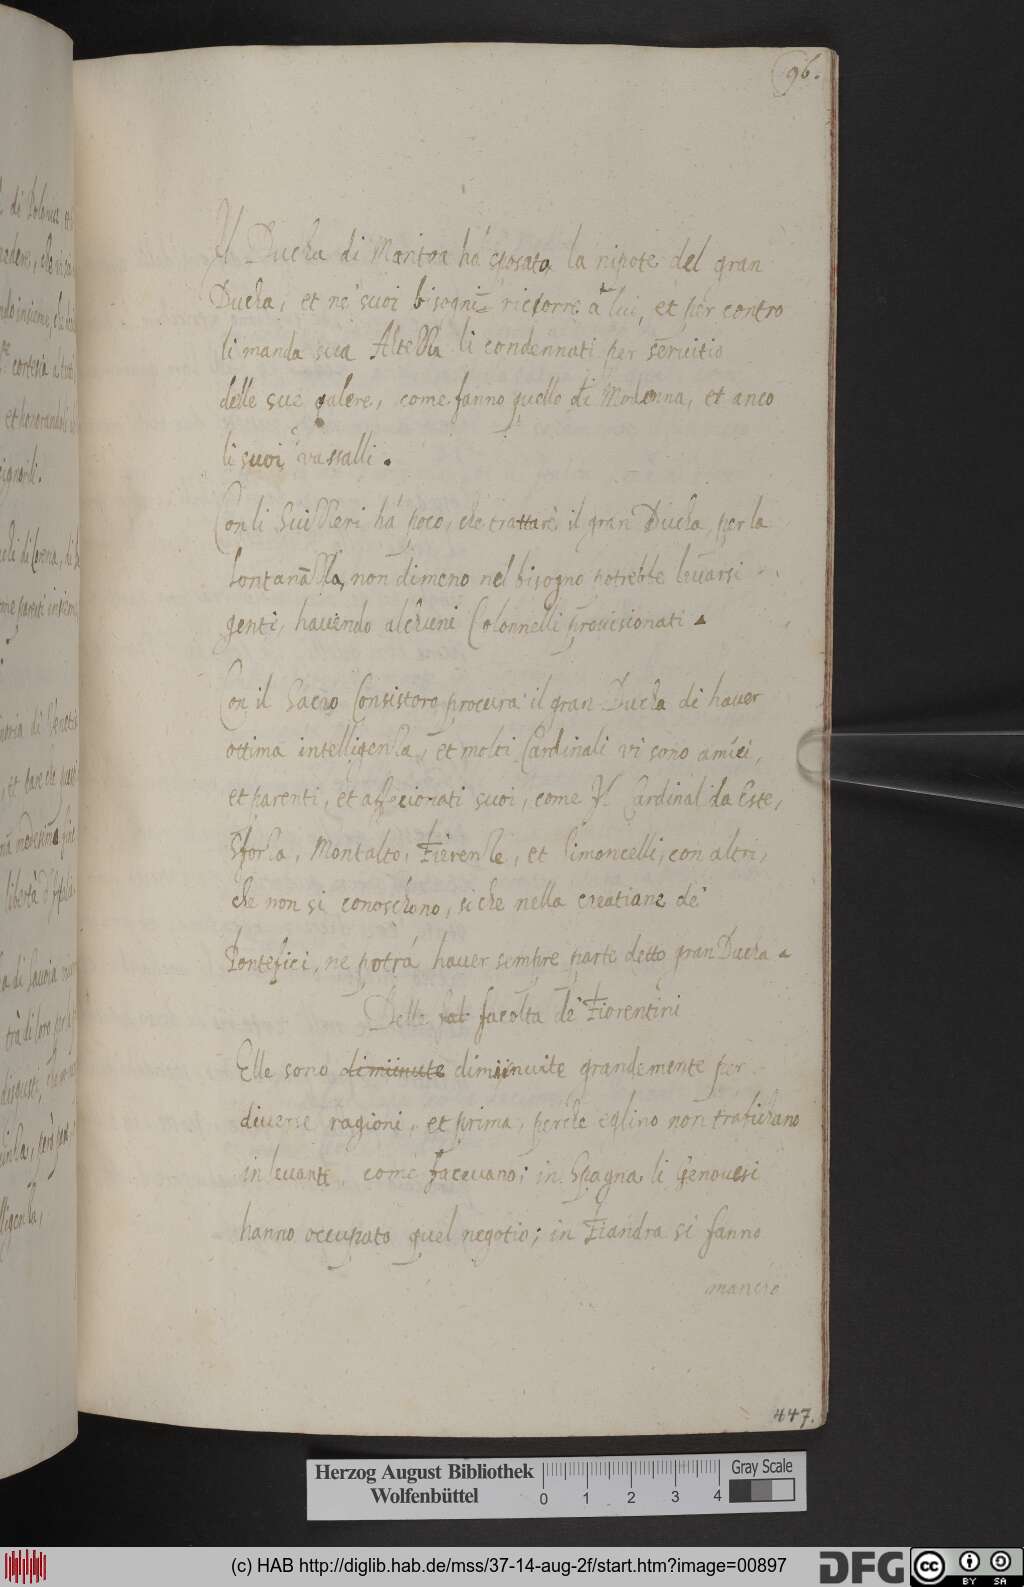 96.
Il Ducha di Mantoa há sposato la nipote del gran
Ducha, et ne' suoi bisogni ricorre á lui, et per contro
li manda sua Altezza li condennati per servitio
delle sue galere, come fanno quello di Modenna, et anco
li suoi vassalli.
Con li Suizzeri há poco, che trattare il gran Ducha, per la
lontananzza, non dimeno nel bisogno potrebbe levarsi
genti, havendo alchuni Colonnelli provisionati.
Con il Sacro Consistoro procura il gran Ducha di haver
ottima intelligenza, et molti Cardinali vi sono amici,
et parenti, et affecionati suoi, come Il Cardinal da Este,
Sforza, Montalto, Fierenze, et Simoncelli, con altri,
che non si conoschono, si che nella creatiane de'
Pontefici, ne potrá haver sempre parte detto gran Ducha.
Delle fal facolta de' Fiorentini
Elle sono dimiinute dimiinuite grandemente per
diverse ragioni, et prima, perche eglino non trafichano
in levante, come facevano; in Spagna li Genovesi
hanno occupato quel negotio; in Fiandra si fanno
mancho
447.
di Polonia et
cortesia
et honorandoli
signorili.
di Lorena,
parenti insieme
di Venetia
medesima fine
libertà d'Italia
di Savoia
trà di loro per
disgusti,
però
Herzog August Bibliothek
Wolfenbüttel
0 1 2 3 4
Gray Scale
(c) HAB http://diglib.hab.de/mss/37-14-aug-2f/start.htm?image=00897
DFG
cc
BY SA